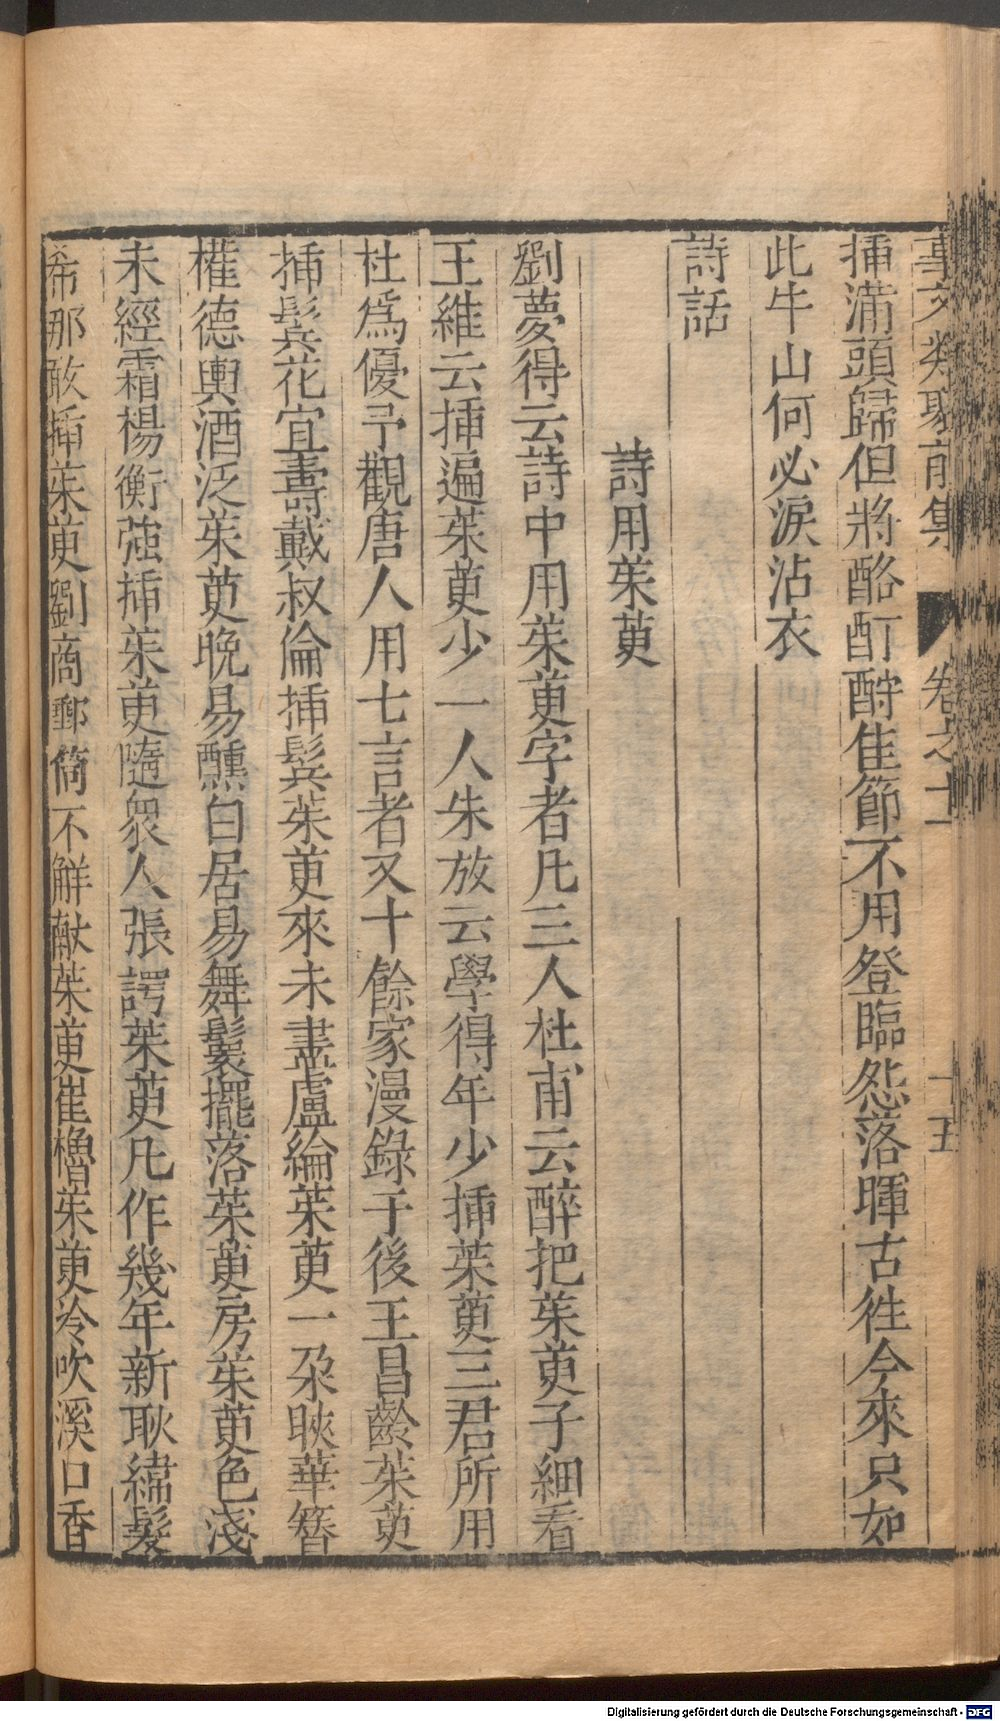 事文類聚前集 卷之十一 十五
揷滿頭歸但將酩酊酧佳節不用登臨怨落暉古往今來只如
此牛山何必淚沾衣
詩話
詩用茱萸
劉夢得云詩中用茱萸字者凡三人杜甫云醉把茱萸子細看
王維云揷遍茱萸少一人朱放云學得年少揷茱萸三君所用
杜爲優予觀唐人用七言者又十餘家漫錄于後王昌齡茱萸
揷鬂花宜壽戴叔倫揷鬂茱萸來未盡盧綸茱萸一朶映華簪
權德輿酒泛茱萸晚易醺白居易舞鬟擺落茱萸房茱萸色淺
未經霜楊衡强揷茱萸隨衆人張諤茱萸凡作幾年新耿緯髮
希那敢揷茱萸劉商郵筒不觧献茱萸崔櫓茱萸冷吹溪口香
Digitalisierung gefördert durch die Deutsche Forschungsgemeinschaft - DFG